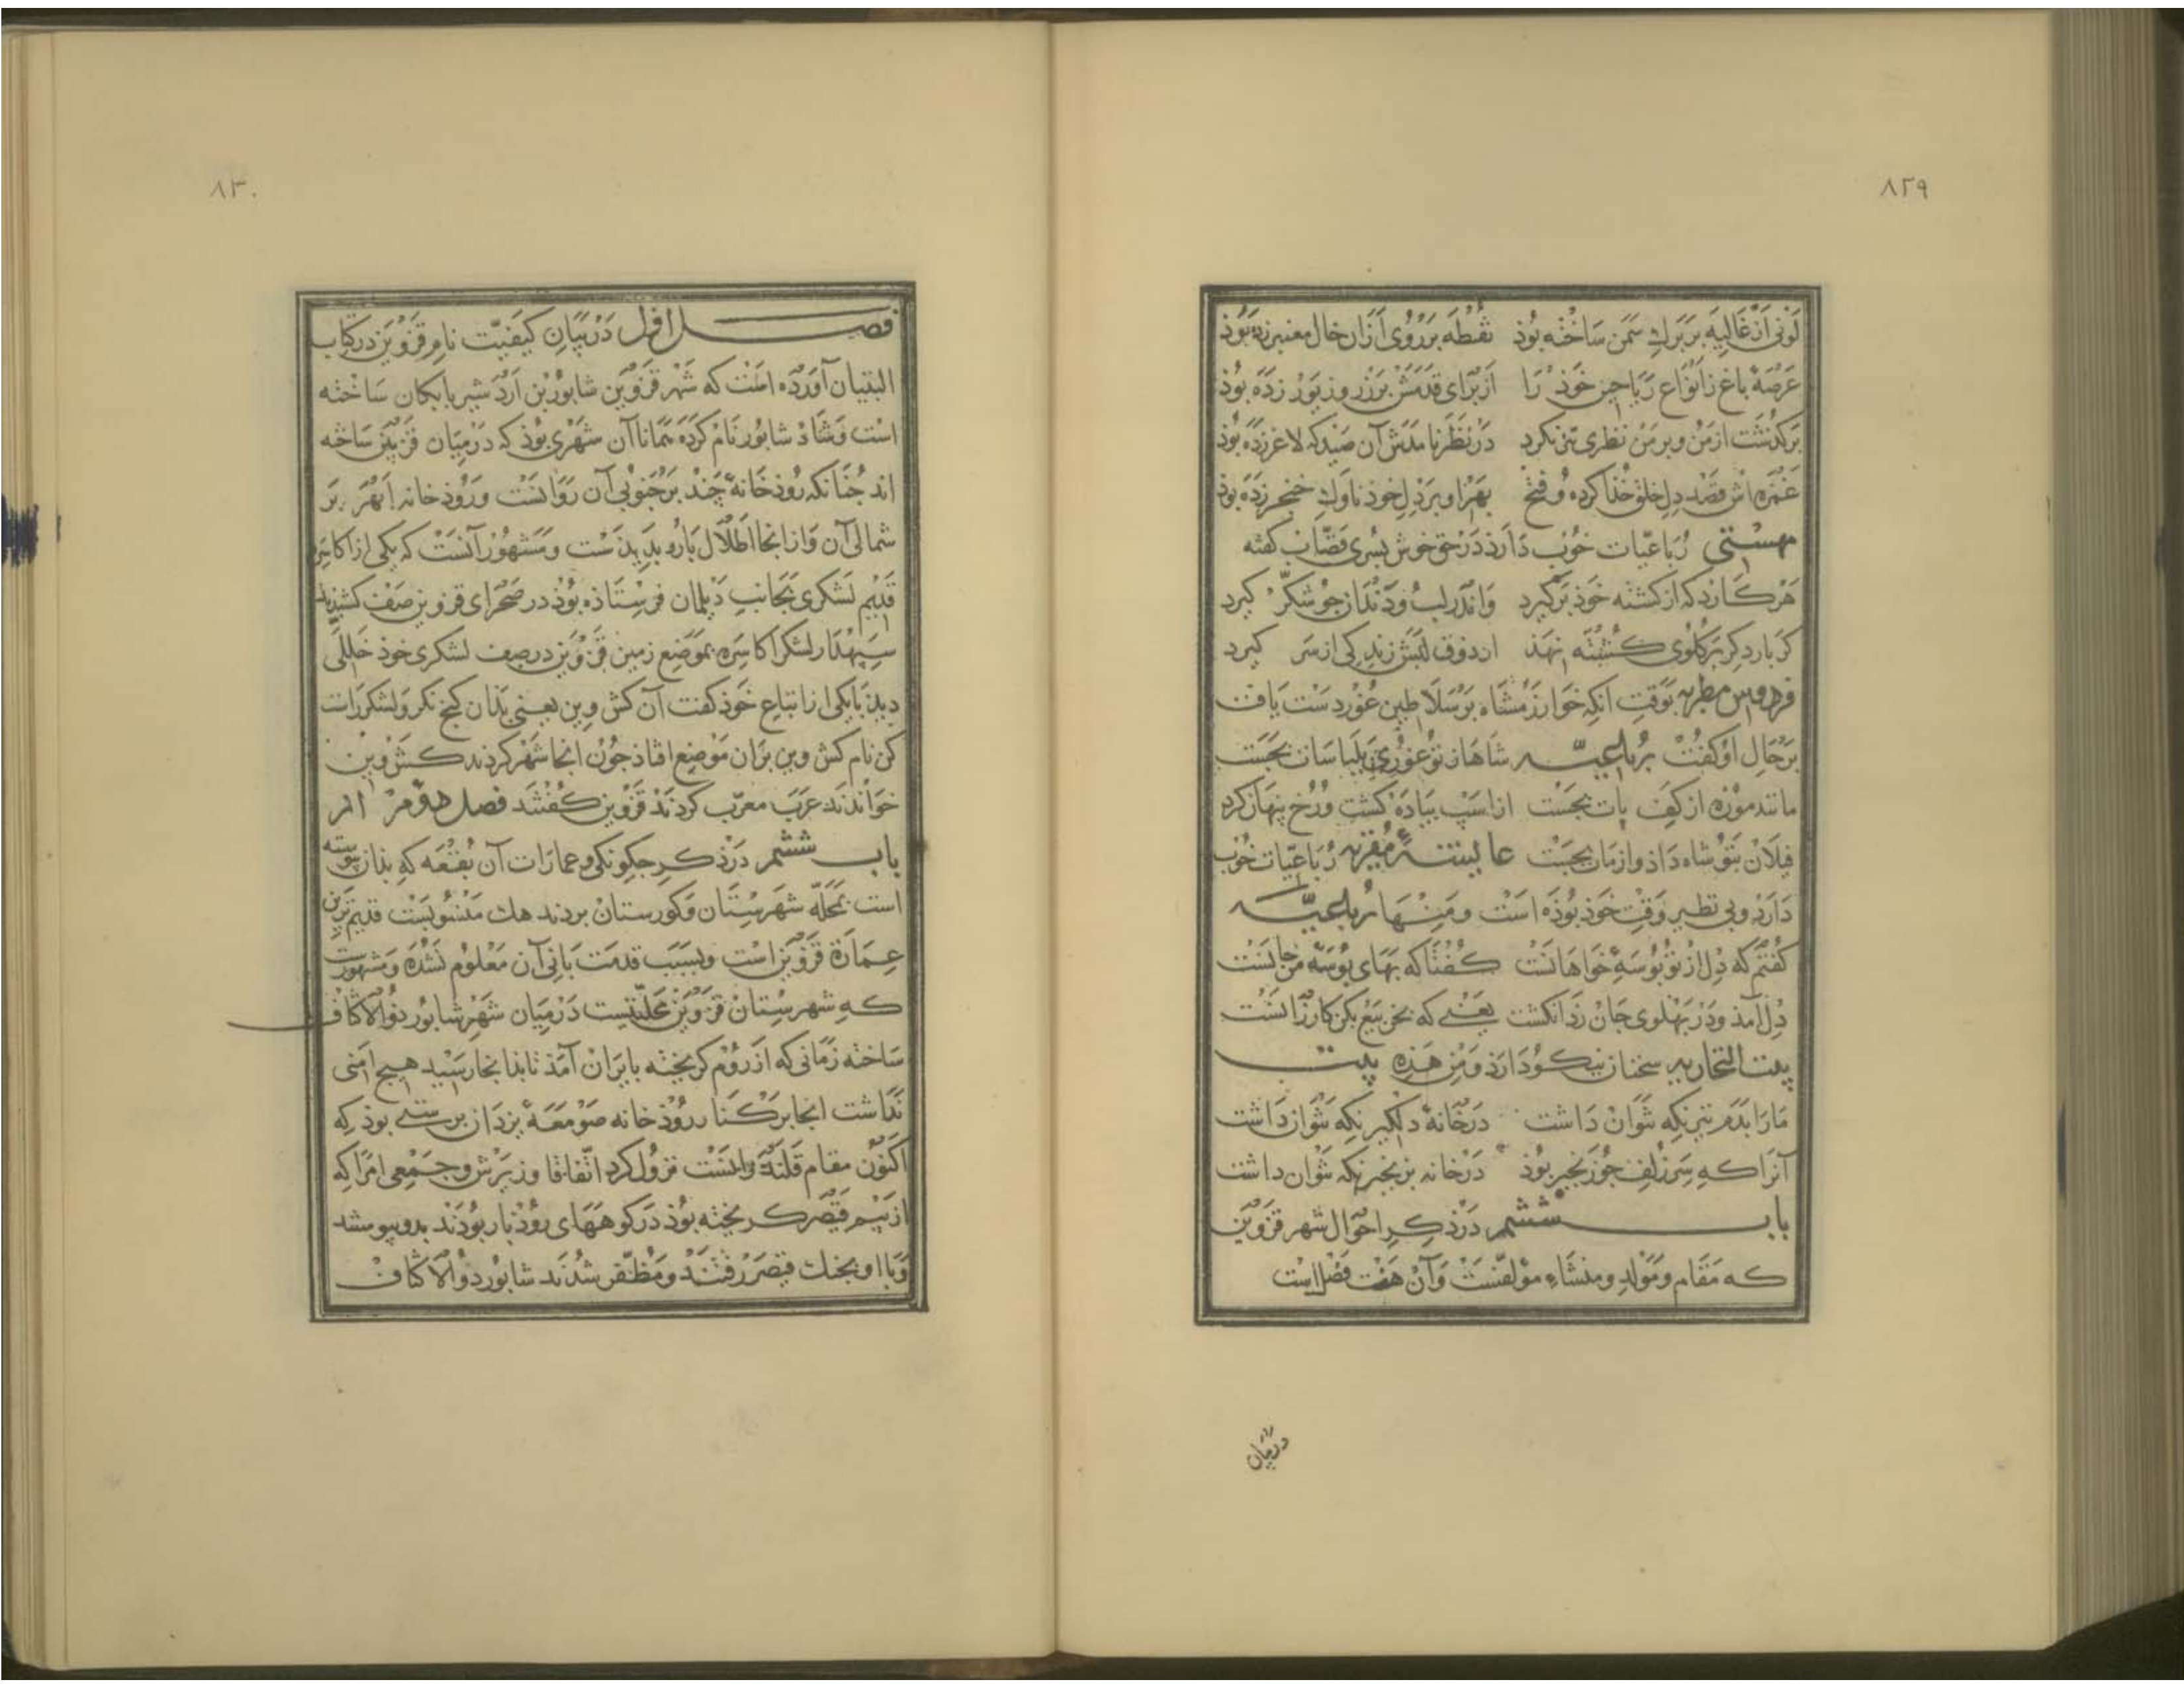 ٨٢٩
لَونی اَز غَالِیَه بَر بَرك سَمَن سَاخْته بُوذ نقطَه بَر رُوی اَزان خال معنبر زده بُوذ
عَرصَهٔ باغ زانوَاع رَیاحین خَوذ رَا اَز بَرای قدَمَش بَر زر و زیوَر زَدَه بُوذ
بَركذشت از من و بر من نظری نیز نكرد دَر نَظَر نامَدَش آن صَیذ كه لاغر زَدَه بُوذ
غَمزه اش قصد دِلِ خلق خُذا كرده و فتح بهر او بَر دِلِ خوذ ناوك خنجر زَدَه بوذ
مهستی رُباعیّات خُوب دَارَذ دَر حق خوش پسری قصّاب كفته
هَر كارد كه از كشته خَوذ بَر كیرد وَاندَر لب و دَندان جو شكّر كیرد
كر بار دِكر بَر كلوی كشته نهذ از ذوق لبَش زندكی از سَر كیرد
فردوس مطربه بَوقتِ آنكه خوارزمشاه بَر سَلاطین غُور دَست یافت
بَر حَالِ او كفت رباعیّه شاها ز تو غوری بَلباسَات بجَست
مانند موزه از كف بات بجَست از اسَب بیاده كشت و رُخ بنهان كرد
فیلان بتو شاه دَاذ و از مات بجَست عایشَهٔ مُقریَه رُباعیّات خُوب
دَارَد و بی نظیر وَقتِ خَوذ بُوذه است و مِنهَا رُباعیّه
كُفتم كه دِل از تو بُوسَهٔ خَواهانست كفتا كه بَهَای بُوسَهٔ من جانست
دِل آمذ و دَر بَهلوی جَان زَد انكشت یَعنی كه بخر بَیع بكن كارزانست
بنت النجاریه سخنان نیكو دَارَذ وَ مِن هَذِه بیت
مَارَا بَدَم تیر نكه نتَوان دَاشت دَر خانهٔ دلكیر نكه نتَوان دَاشت
آنرَا كه سَر زلف جُو زنجیر بُوذ دَر خانه بزنجیر نكه نتَوان داشت
باب ششم دَر ذِكرِ احوَال شهر قزوین
كه مَقَام و مَولِد و منشَاءِ مؤلفست وَ آن هَفت فَصل است
دربیان
٨٣٠
فصل اول دَر بَیَانِ كیفیّت نام قزوین در كتاب
البنیان آورده است كه شَهر قزوین شابُور بن اَردَشیر بابكان سَاخته
است وَ شاذ شابُور نام كرده همانا آن شهری بُوذ كه دَر میان قزوین سَاخته
اند جُنانكه رُوذخَانهٔ چند بَر جنوبی آن رَوَانست وَ رُوذخانه اَبهَر بَر
شمالی آن وَ از آنجا اَطلال بارُو بَدیدَست و مَشهُور آنست كه یكی از اكاسره
قدیم لَشكری بجانبِ دیلمان فرستاذه بُوذ در صَحرای قزوین صَف كشیدند
سِبَهدَار لشكر اكاسِرَه بموَضِع زمین قزوین در صف لشكری خوذ خَلَلی
دید با یكی از اتباع خَوذ كفت آن كش وین یعنی بذان كنج نكر وَ لشكر راست
كن نام كش وین بَران مَوضِع افتاذ جُون انجا شَهر كردند كَش وین
خوَاندَند عَرَب معرّب كردند قزوین كُفتَند فصل دوّم از
باب ششم دَر ذِكرِ جكونكی و عمارَات آن بُقعَه كه بذان بیوسته
است بمَحَلّه شَهرستان وَ كورستان مَنسُوبَست قدیم ترین
عِمارَة قزوین است و بسَبَب قدمَت بَانی آن مَعلوم نشده وَ مشهورست
كه شهرستان قزوین محَلّتیست دَر میان شَهر شابُور ذوالاكتاف
سَاخته زمانی كه از رُوم كریخته بایران آمَذ تا بذانجا رَسید هیج امنی
نَدَاشت انجا بر كنار رُوذخانه صَومَعَهٔ یزدَان برستی بوذ كه
اكنون مقام قلندَرانست نزول كرد اتّفاقا وَزیرَش و جَمعی امرا كه
از بیم قیصَر كریخته بُوذ دَر كوههَای رُوذبار بُوذَند بدو بیوستند
وَ با او بجنك قیصَر رَفتند و مُظَفّر شُدَند شابُور ذُوالاكتاف